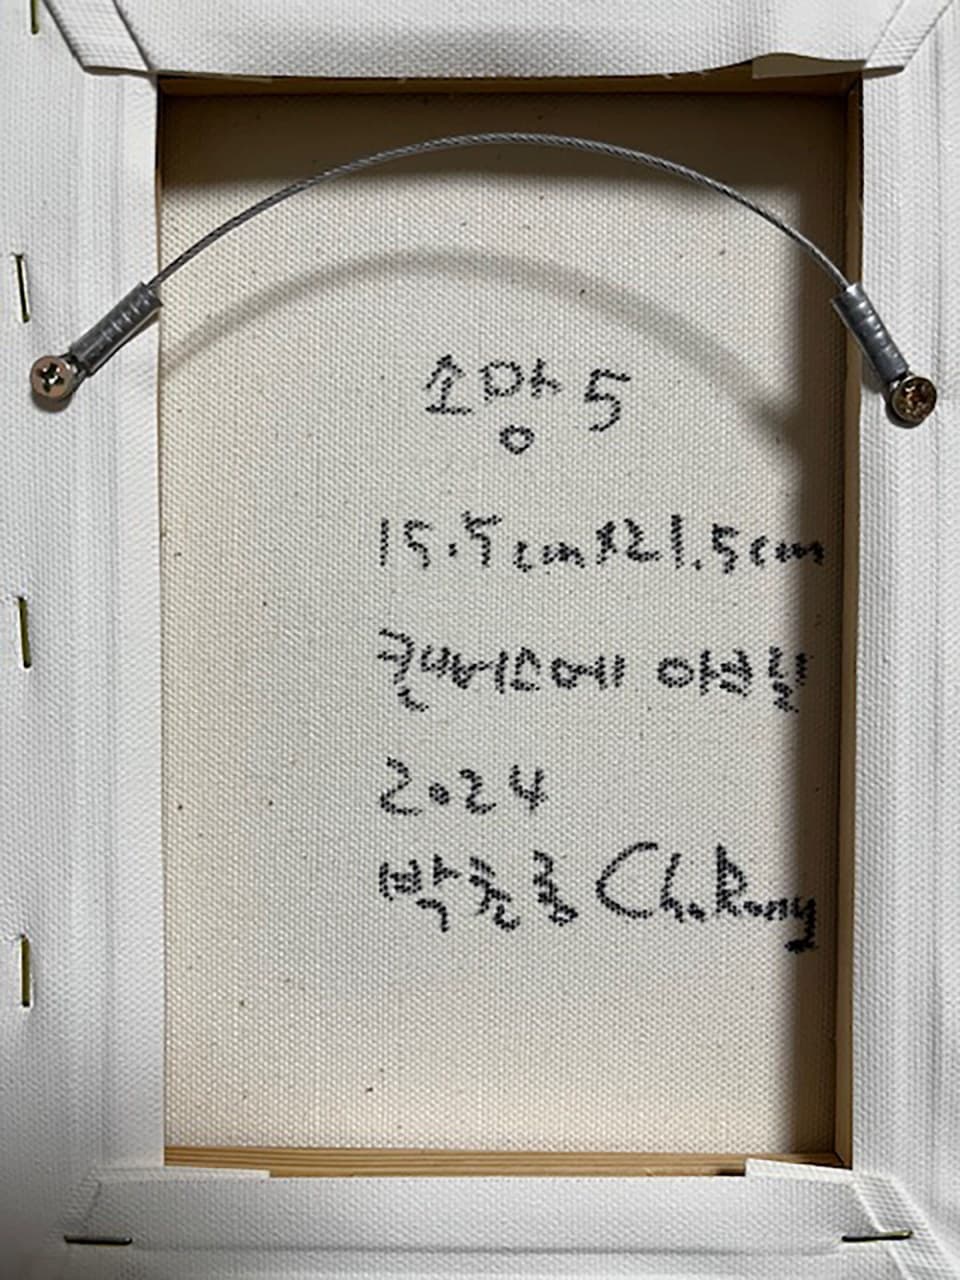 소망 5
15.5cm x 21.5cm
캔버스에 아크릴
2024
박춘룡